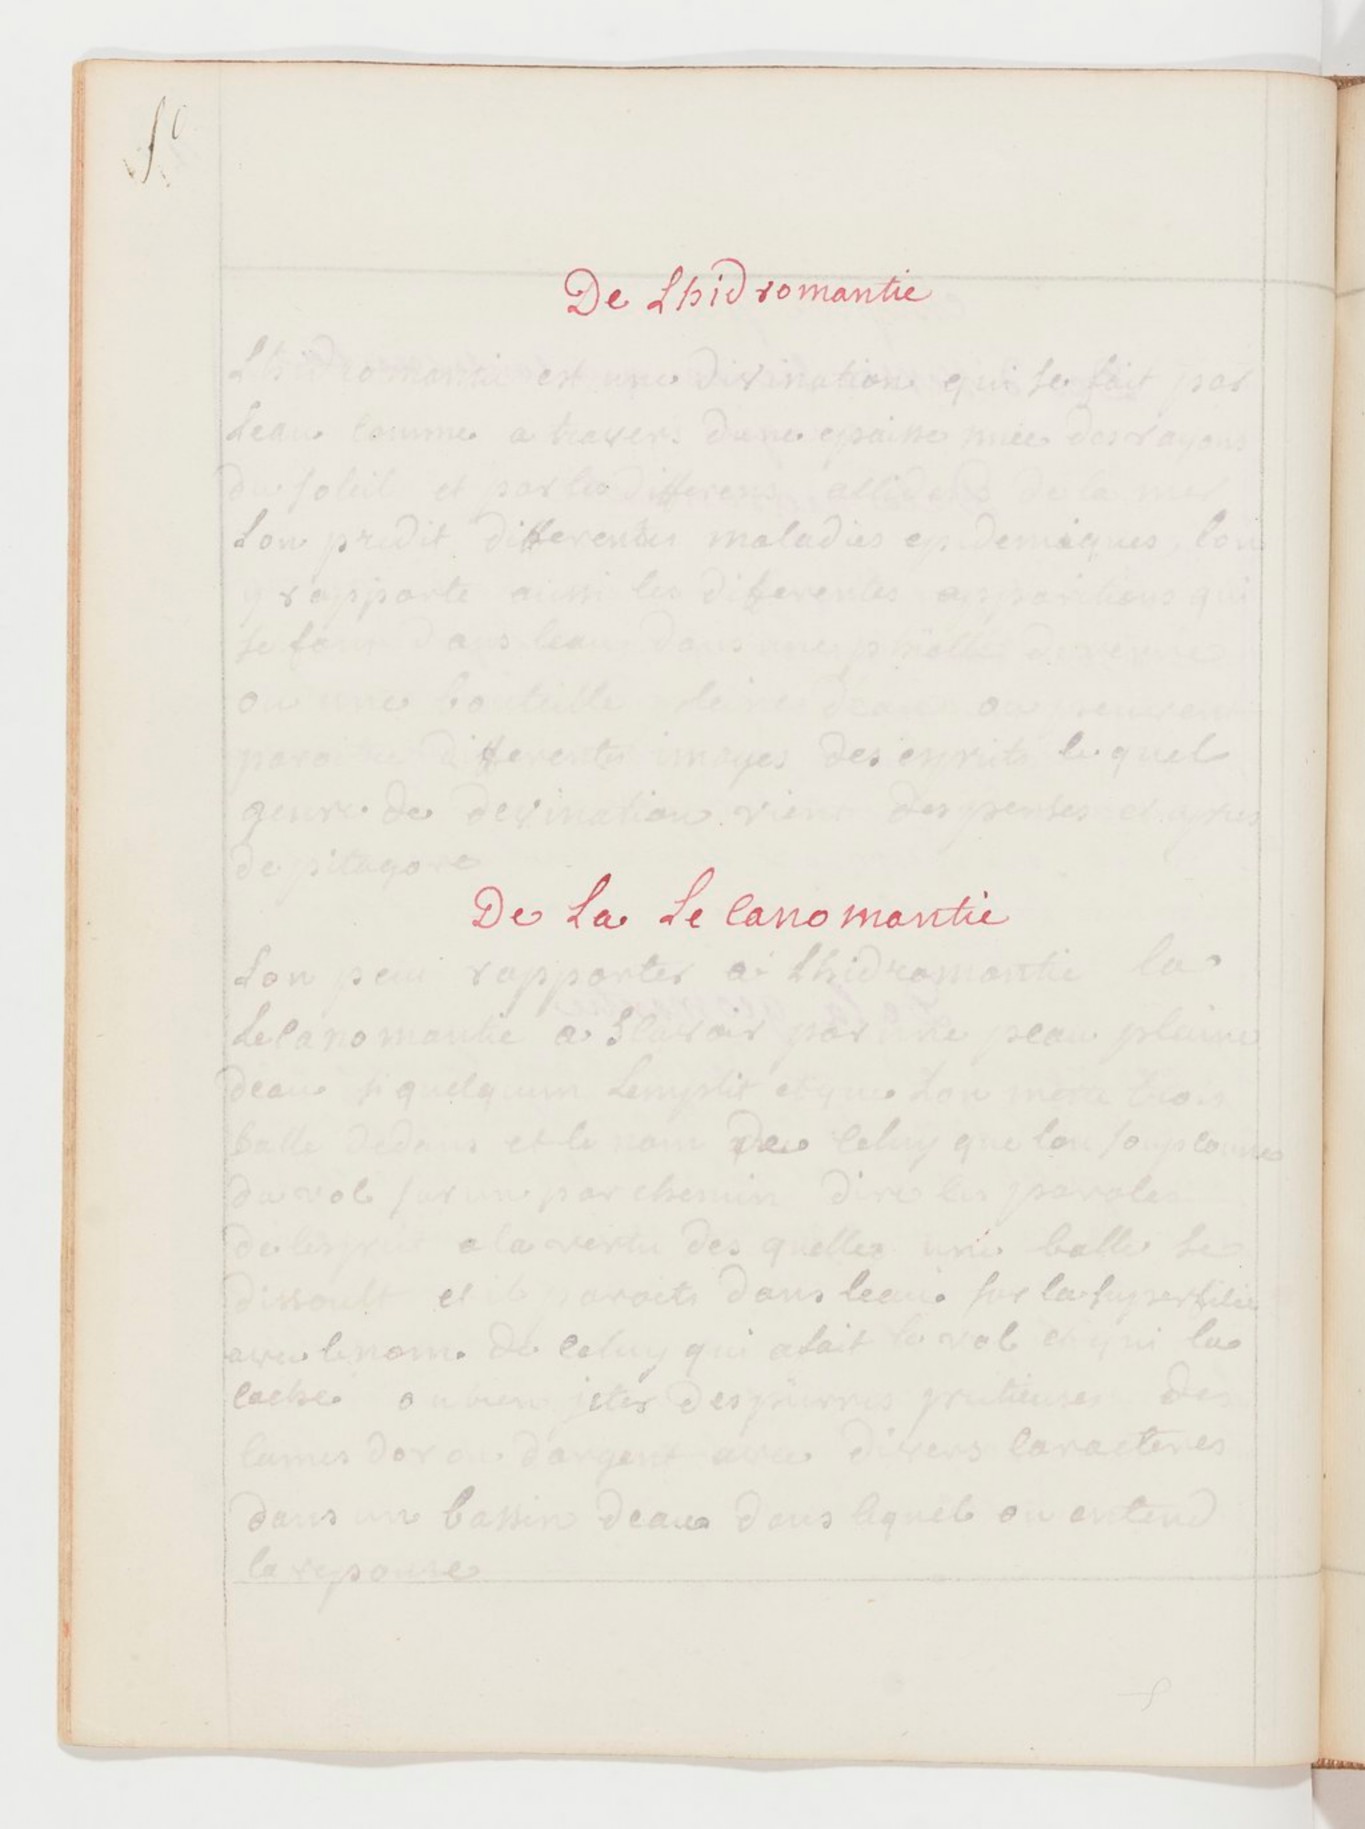 De Lhidromantie
Lhidromantie est une divination qui se fait par
Leau comme a travers dune epaisse nuée des rayons
du soleil et par les differens accidens de la mer
Lon predit differentes maladies epidemiques, lon
y rapporte aussi les differentes apparitions qui
se font dans leau dans une de verre
ou une bouteille pleine deau ou
differentes images des esprits lequel
genre de devination vient des perses et apres
de pitagore
De La Lecanomantie
Lon peu rapporter a Lhidromantie la
Lecanomantie a Scavoir par une peau pleine
deau si quelquun Lemplit et que Lon mette trois
balle dedans et le nom de celuy que lon soupconne
du vol sur un parchemin dire les paroles
de lesprit a la vertu des quelles une balle se
dissoult et il paroits dans leau sur la superficie
avec le nom de celuy qui a fait le vol et qui la
caché ou bien jeter des pierres pretieuses des
lames dor ou dargent avec divers caracteres
dans un bassin deau dans lequel on entend
la reponse